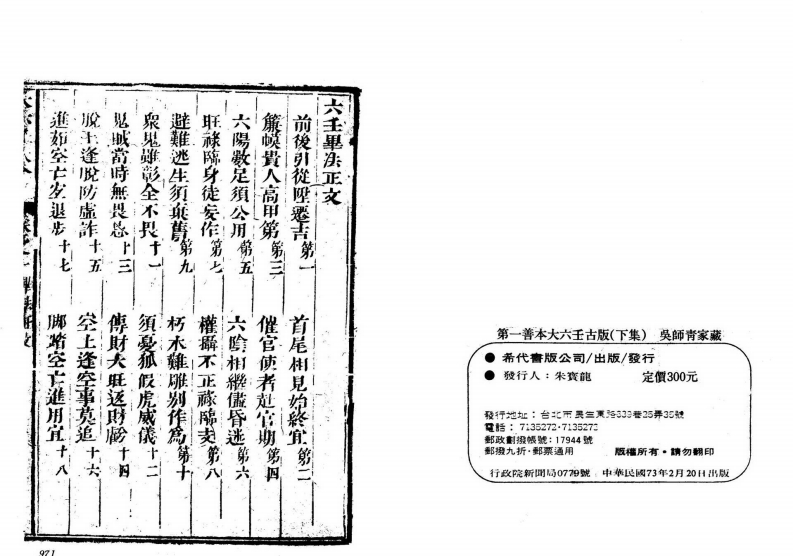 六壬畢法正文
前後引從陞遷吉第一 首尾相見始終宜第二
簾幙貴人高甲第第三 催官使者赴官期第四
六陽數足須公用第五 六陰相繼儘昏迷第六
旺祿臨身徒妄作第七 權攝不正祿臨支第八
避難逃生須棄舊第九 朽木難雕别作為第十
衆鬼雖彰全不畏十一 須憂狐假虎威儀十二
鬼賊當時無畏忌十三 傳財太旺返財虧十四
脫上逢脫防虛詐十五 空上逢空事莫追十六
進茹空亡宜退步十七 脚踏空亡進用宜十八
971
第一善本大六壬古版(下集) 吳師青家藏
● 希代書版公司/出版/發行
● 發行人：朱寶龍 定價300元
發行地址：台北市民生東路
電話：7135272·
郵政劃撥帳號：17944號
郵撥九折·郵票通用 版權所有·請勿翻印
行政院新聞局0779號 中華民國73年2月20日出版